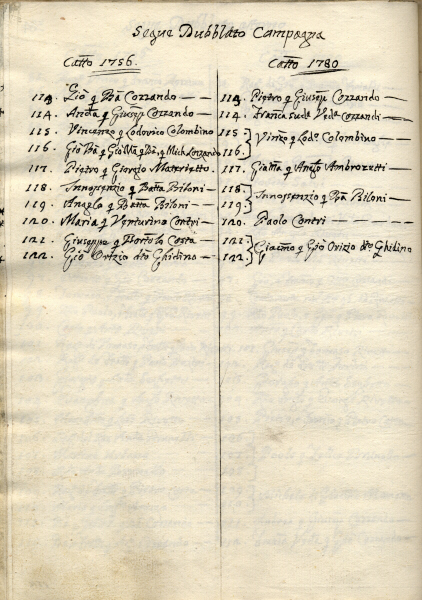 Segue Dubblato Campagna
Catto 1756.
113. Gio q Ba Cozzando
114. Anta q Giusep Cozzando
115. Vincenzo q Lodovico Colombino
116. Gio Ba q
117. Pietro q Giorgio
118. Innossenzio q Batta Biloni
119. Angelo q Batta Biloni
120. Maria q Venturino Contri
121. Giuseppe q Bortolo Costa
122. Gio Orizio dto Ghidino
Catto 1780
113. Pietro q Giusep Cozzando
114. Cozzandi
115. Vinzo q Lodo Colombino
116.
117. q Angelo Ambrozetti
118. Innossenzio q Ba Biloni
119.
120. Paolo Contri
121. Giacmo q Gio Orizio dto Ghidino
122.